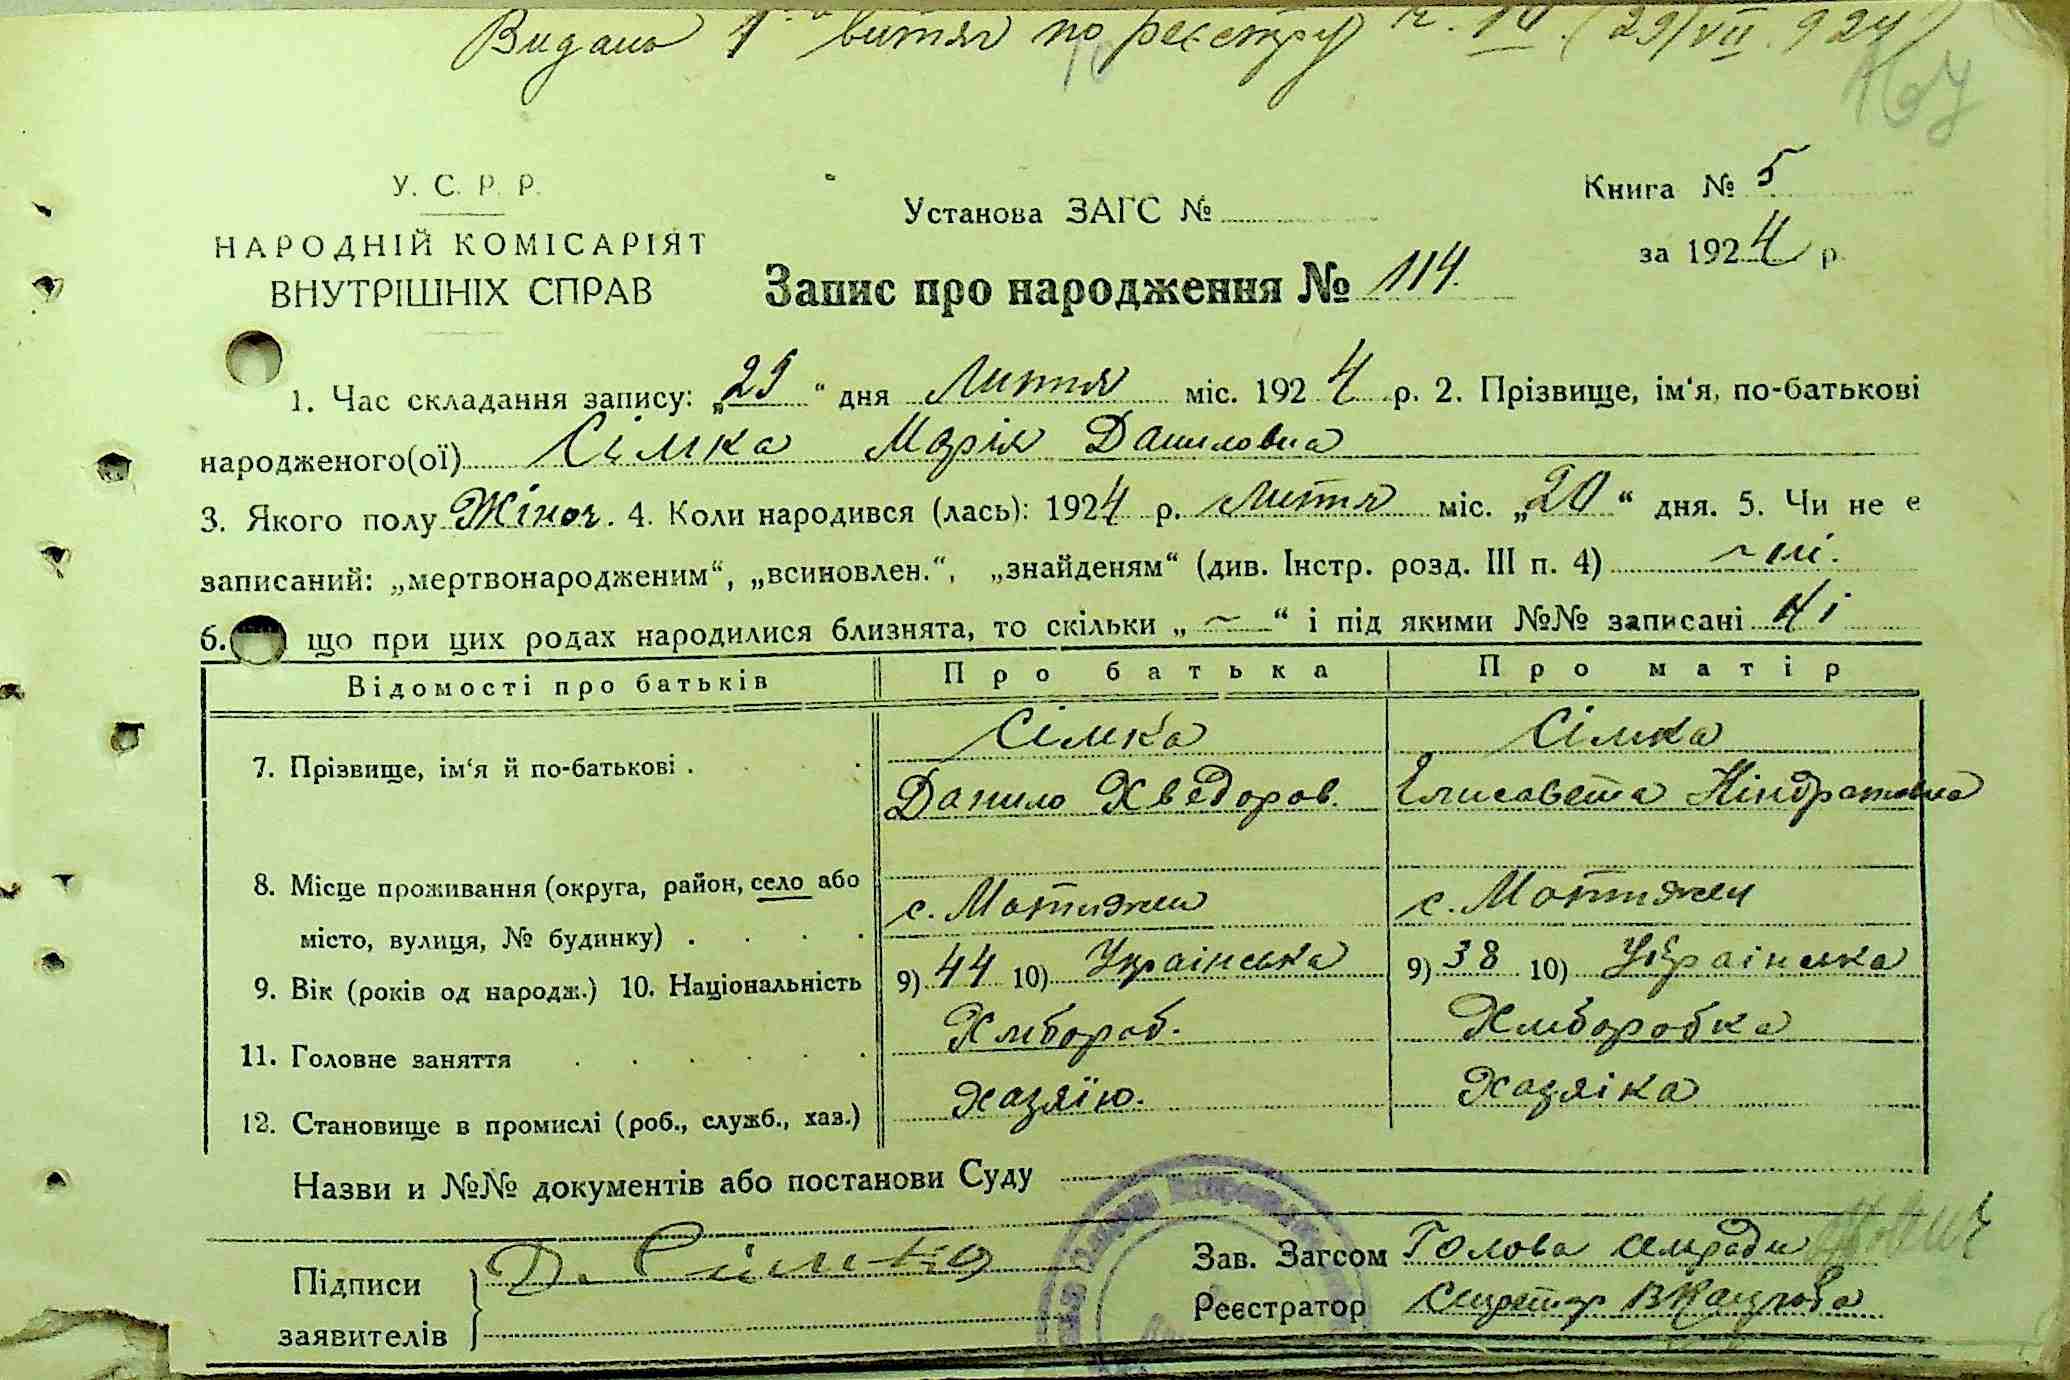 Видано 1 витяг по реєстру ч. 10. (29/VII. 924)
У. С. Р. Р.
НАРОДНІЙ КОМІСАРІЯТ
ВНУТРІШНІХ СПРАВ
Установа ЗАГС №
Книга № 5
за 1924 р.
Запис про народження № 114.
1. Час складання запису: „29“ дня Лютня міс. 1924 р. 2. Прізвище, ім‘я, по-батькові
народженого(ої) Сімка Марія Даниловна
3. Якого полу Жіноч. 4. Коли народився (лась): 1924 р. Лютня міс. „20“ дня. 5. Чи не є
записаний: „мертвонародженим“, „всиновлен.“, „знайденям“ (див. Інстр. розд. III п. 4) ~ ні.
6. що при цих родах народилися близнята, то скільки „ ~ “ і під якими №№ записані
Відомості про батьків Про батька Про матір
7. Прізвище, ім‘я й по-батькові . Сімка Сімка
Данило Хведоров. Елисавета Кіндратовна
8. Місце проживання (округа, район, село або
місто, вулиця, № будинку) . с. Мотижин с. Мотижин
9. Вік (років од народж.) 10. Національність 9) 44 10) Українська 9) 38 10) Українська
11. Головне заняття Хлібороб. Хлiборобка
12. Становище в промислі (роб., служб., хаз.) Хазяїн. Хазяіка
Назви и №№ документів або постанови Суду
Підписи
заявителів
Д. Сімка
Зав. Загсом Голова сільради
Реєстратор Секретар